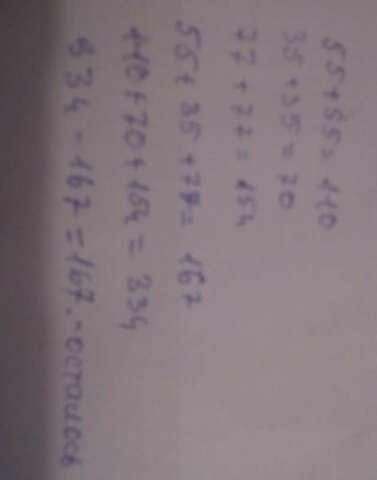 55+55=110
35+35=70
77+77=154
55+35+77=167
110+70+154=334
334-167=167.-осталось